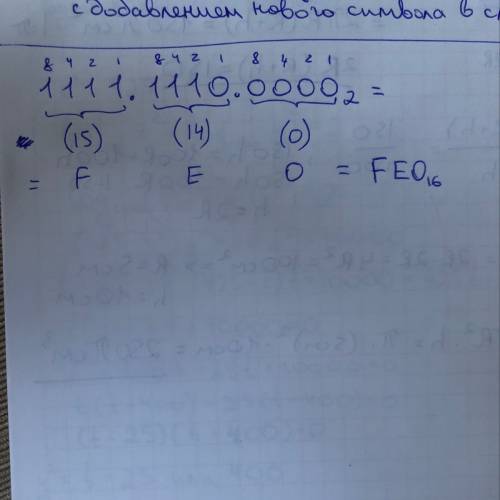 с добавлением нового символа в
8 4 2 1 8 4 2 1 8 4 2 1
1111.1110.0000₂ =
(15) (14) (0)
= F E 0 = FE0₁₆